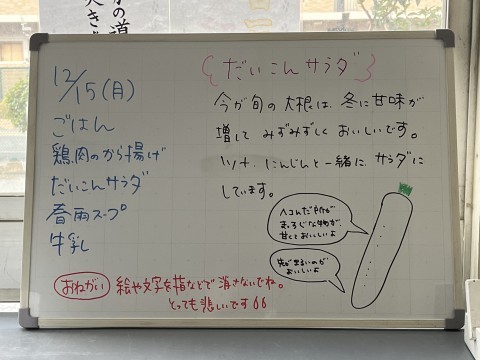 12/15(月)
ごはん
鶏肉のから揚げ
だいこんサラダ
春雨スープ
牛乳
{だいこんサラダ}
今が旬の大根は、冬に甘味が
増して みずみずしく おいしいです。
ツナ、にんじんと一緒に サラダに
しています。
ヘコんだ部分が
まっすぐな物が、
甘くておいしいよ
先が丸いのが
おいしいよ
おねがい 絵や文字を指などで 消さないでね。
とっても悲しいです